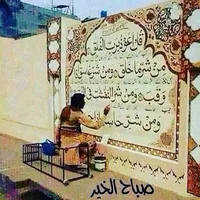 قل أعوذ برب الفلق
من شر ما خلق ومن شر غاسق
وقب ومن شر النفثت في
ومن شر حاسد
صباح الخير